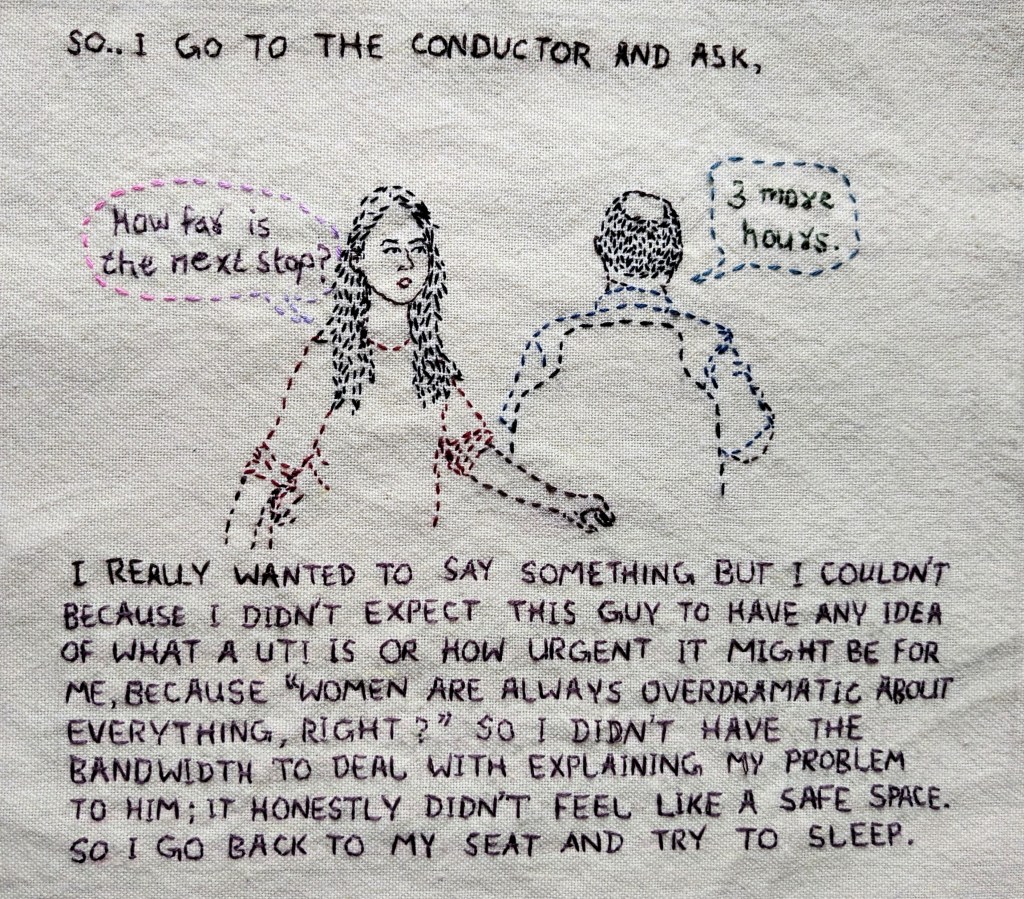 SO.. I GO TO THE CONDUCTOR AND ASK,
How far is
the next stop?
3 more
hours.
I REALLY WANTED TO SAY SOMETHING BUT I COULDN'T
BECAUSE I DIDN'T EXPECT THIS GUY TO HAVE ANY IDEA
OF WHAT A UTI IS OR HOW URGENT IT MIGHT BE FOR
ME, BECAUSE "WOMEN ARE ALWAYS OVERDRAMATIC ABOUT
EVERYTHING, RIGHT?" SO I DIDN'T HAVE THE
BANDWIDTH TO DEAL WITH EXPLAINING MY PROBLEM
TO HIM; IT HONESTLY DIDN'T FEEL LIKE A SAFE SPACE.
SO I GO BACK TO MY SEAT AND TRY TO SLEEP.